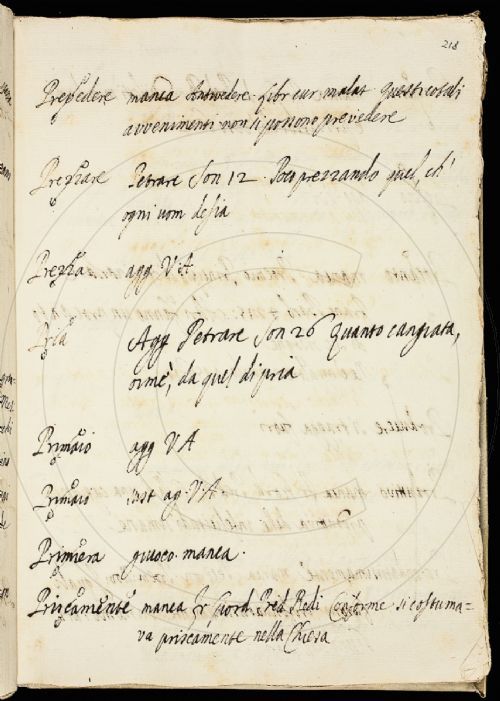 218
Prevedere manca Antivedere. Libr cur malat Questi cotali
avvenimenti non si possono prevedere
Prezzare Petrarc Son 12. Poco prezzando quel, ch'
ogni uom desia
agg V.A
Pria Agg Petrarc Son 26 Quanto cangiata,
oimè, da quel di pria
Primaio agg V A
Primaio sust ag. V A
Primiera giuoco. manca.
Priscamente manca Fr Giord Pred Redi Conforme si costuma=
va priscamente nella Chiesa